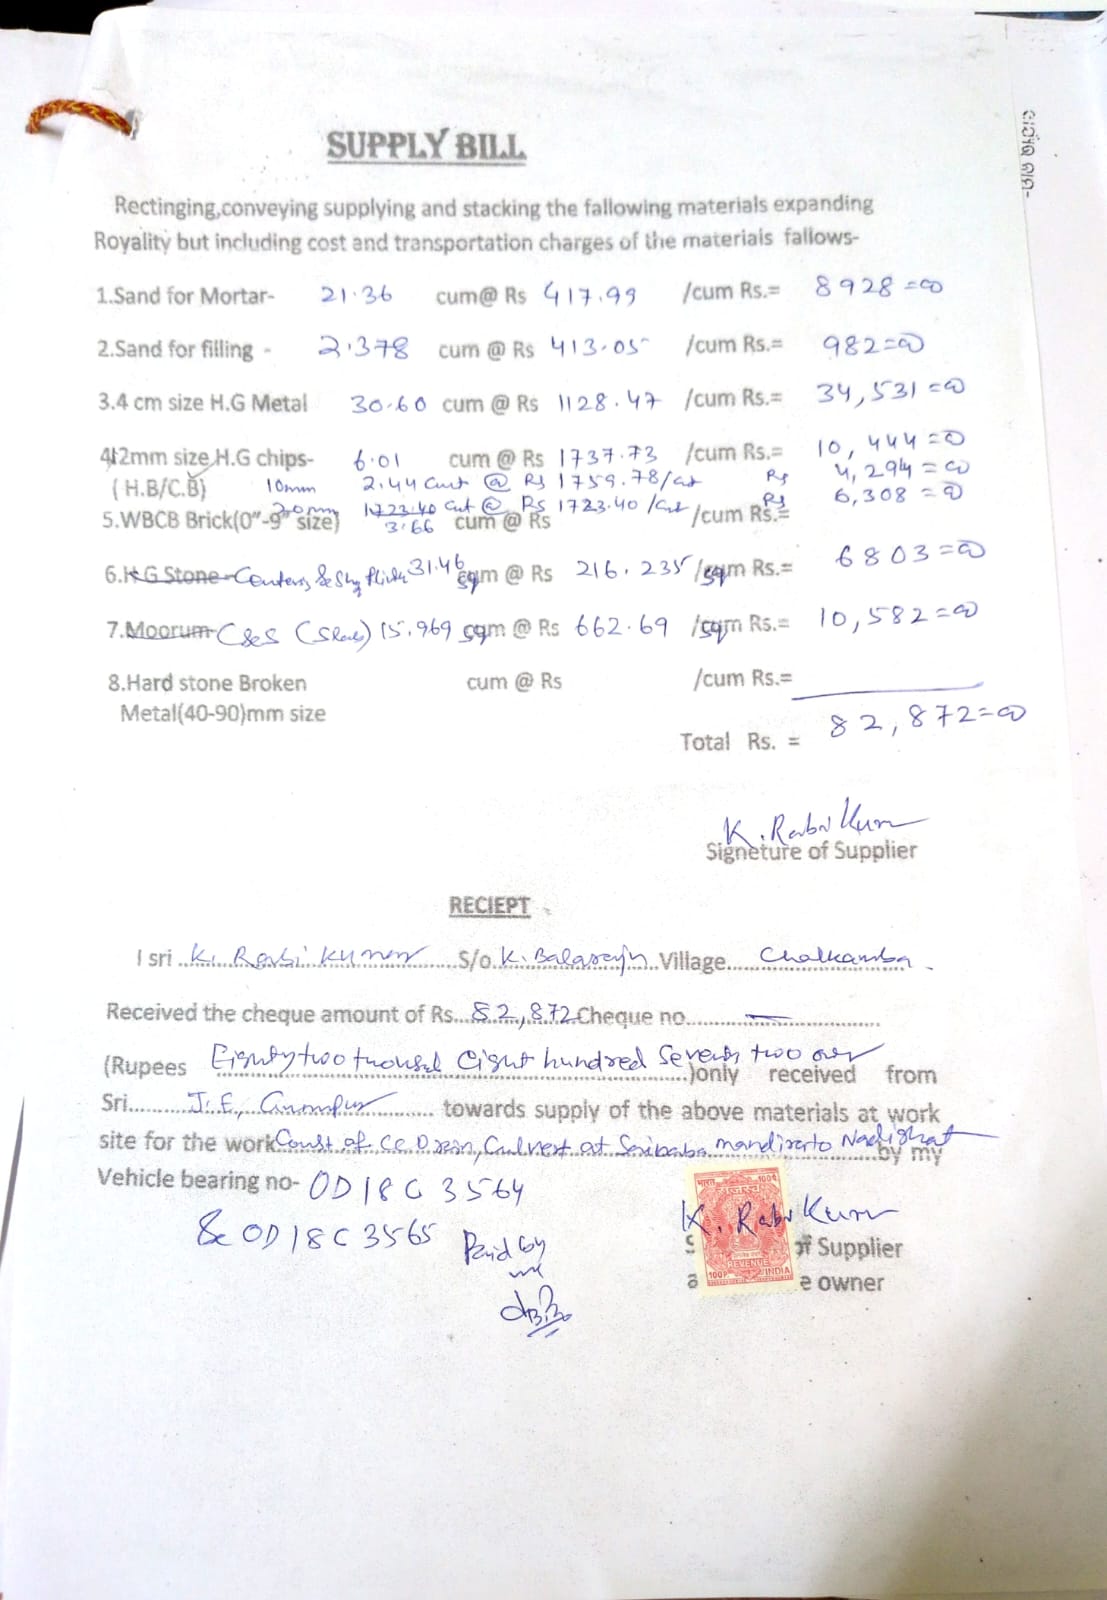 ଗପାଁଇ ନାମ-
SUPPLY BILL
Rectinging,conveying supplying and stacking the fallowing materials expanding
Royality but including cost and transportation charges of the materials fallows-
1.Sand for Mortar- 21.36 cum@ Rs 417.99 /cum Rs.= 8928=00
2.Sand for filling - 2.378 cum @ Rs 413.05 /cum Rs.= 982=00
3.4 cm size H.G Metal 30.60 cum @ Rs 1128.47 /cum Rs.= 34,531=00
4.12mm size H.G chips- 6.01 cum @ Rs 1737.73 /cum Rs.= 10,444=00
(H.B/C.B) 10mm 2.44 cum @ Rs 1759.78/cut Rs 4,294=00
20mm 1723.40 cut @ Rs 1723.40/cut Rs 6,308=00
5.WBCB Brick(0"-9" size) 3.66 cum @ Rs /cum Rs.=
6.H.G Stone- 31.46 sqm @ Rs 216.235 /sqm Rs.= 6803=00
7.Moorum C&S (Slab) 15.969 sqm @ Rs 662.69 /sqm Rs.= 10,582=00
8.Hard stone Broken cum @ Rs /cum Rs.=
Metal(40-90)mm size
Total Rs. = 82,872=00
K. Rabi Kumar
Signeture of Supplier
RECIEPT
I sri K. Rabi Kumar S/o K. Balaraju Village Chalkamba.
Received the cheque amount of Rs 82,872 Cheque no —
(Rupees Eighty two thousd Eight hundred Seventy two only )only received from
Sri J.E, towards supply of the above materials at work
site for the work Const. of CC Drain, Culvert at Saibaba mandir to Nadighat by my
Vehicle bearing no- OD18C 3564
& OD18C 3565
Paid by
me
K. Rabi Kumar
S of Supplier
a e owner
भारत 100P
REVENUE
100P INDIA